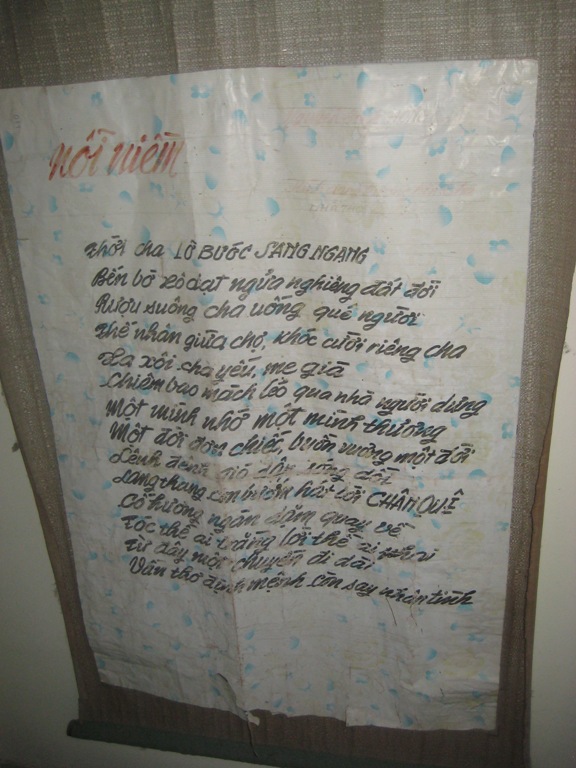 nỗi niềm
Thời cha LỠ BƯỚC SANG NGANG
Bến bờ xô dạt ngửa nghiêng đất đời
Rượu suông cha uống quê người
Thế nhân giữa chợ, khóc cười riêng cha
Xa xôi cha yếu, mẹ già
Chiêm bao mách lẻo qua nhà người dưng
Một mình nhớ một mình thương
Một đời đơn chiếc, buồn vương một đời
Lênh đênh đời
Lang thang con bướm hát lời CHÂN QUÊ
Cố hương ngàn dặm quay về
Tóc thề ai trắng lời thề ai
Từ đây một chuyến đi dài
Vần thơ định mệnh còn say nhân tình